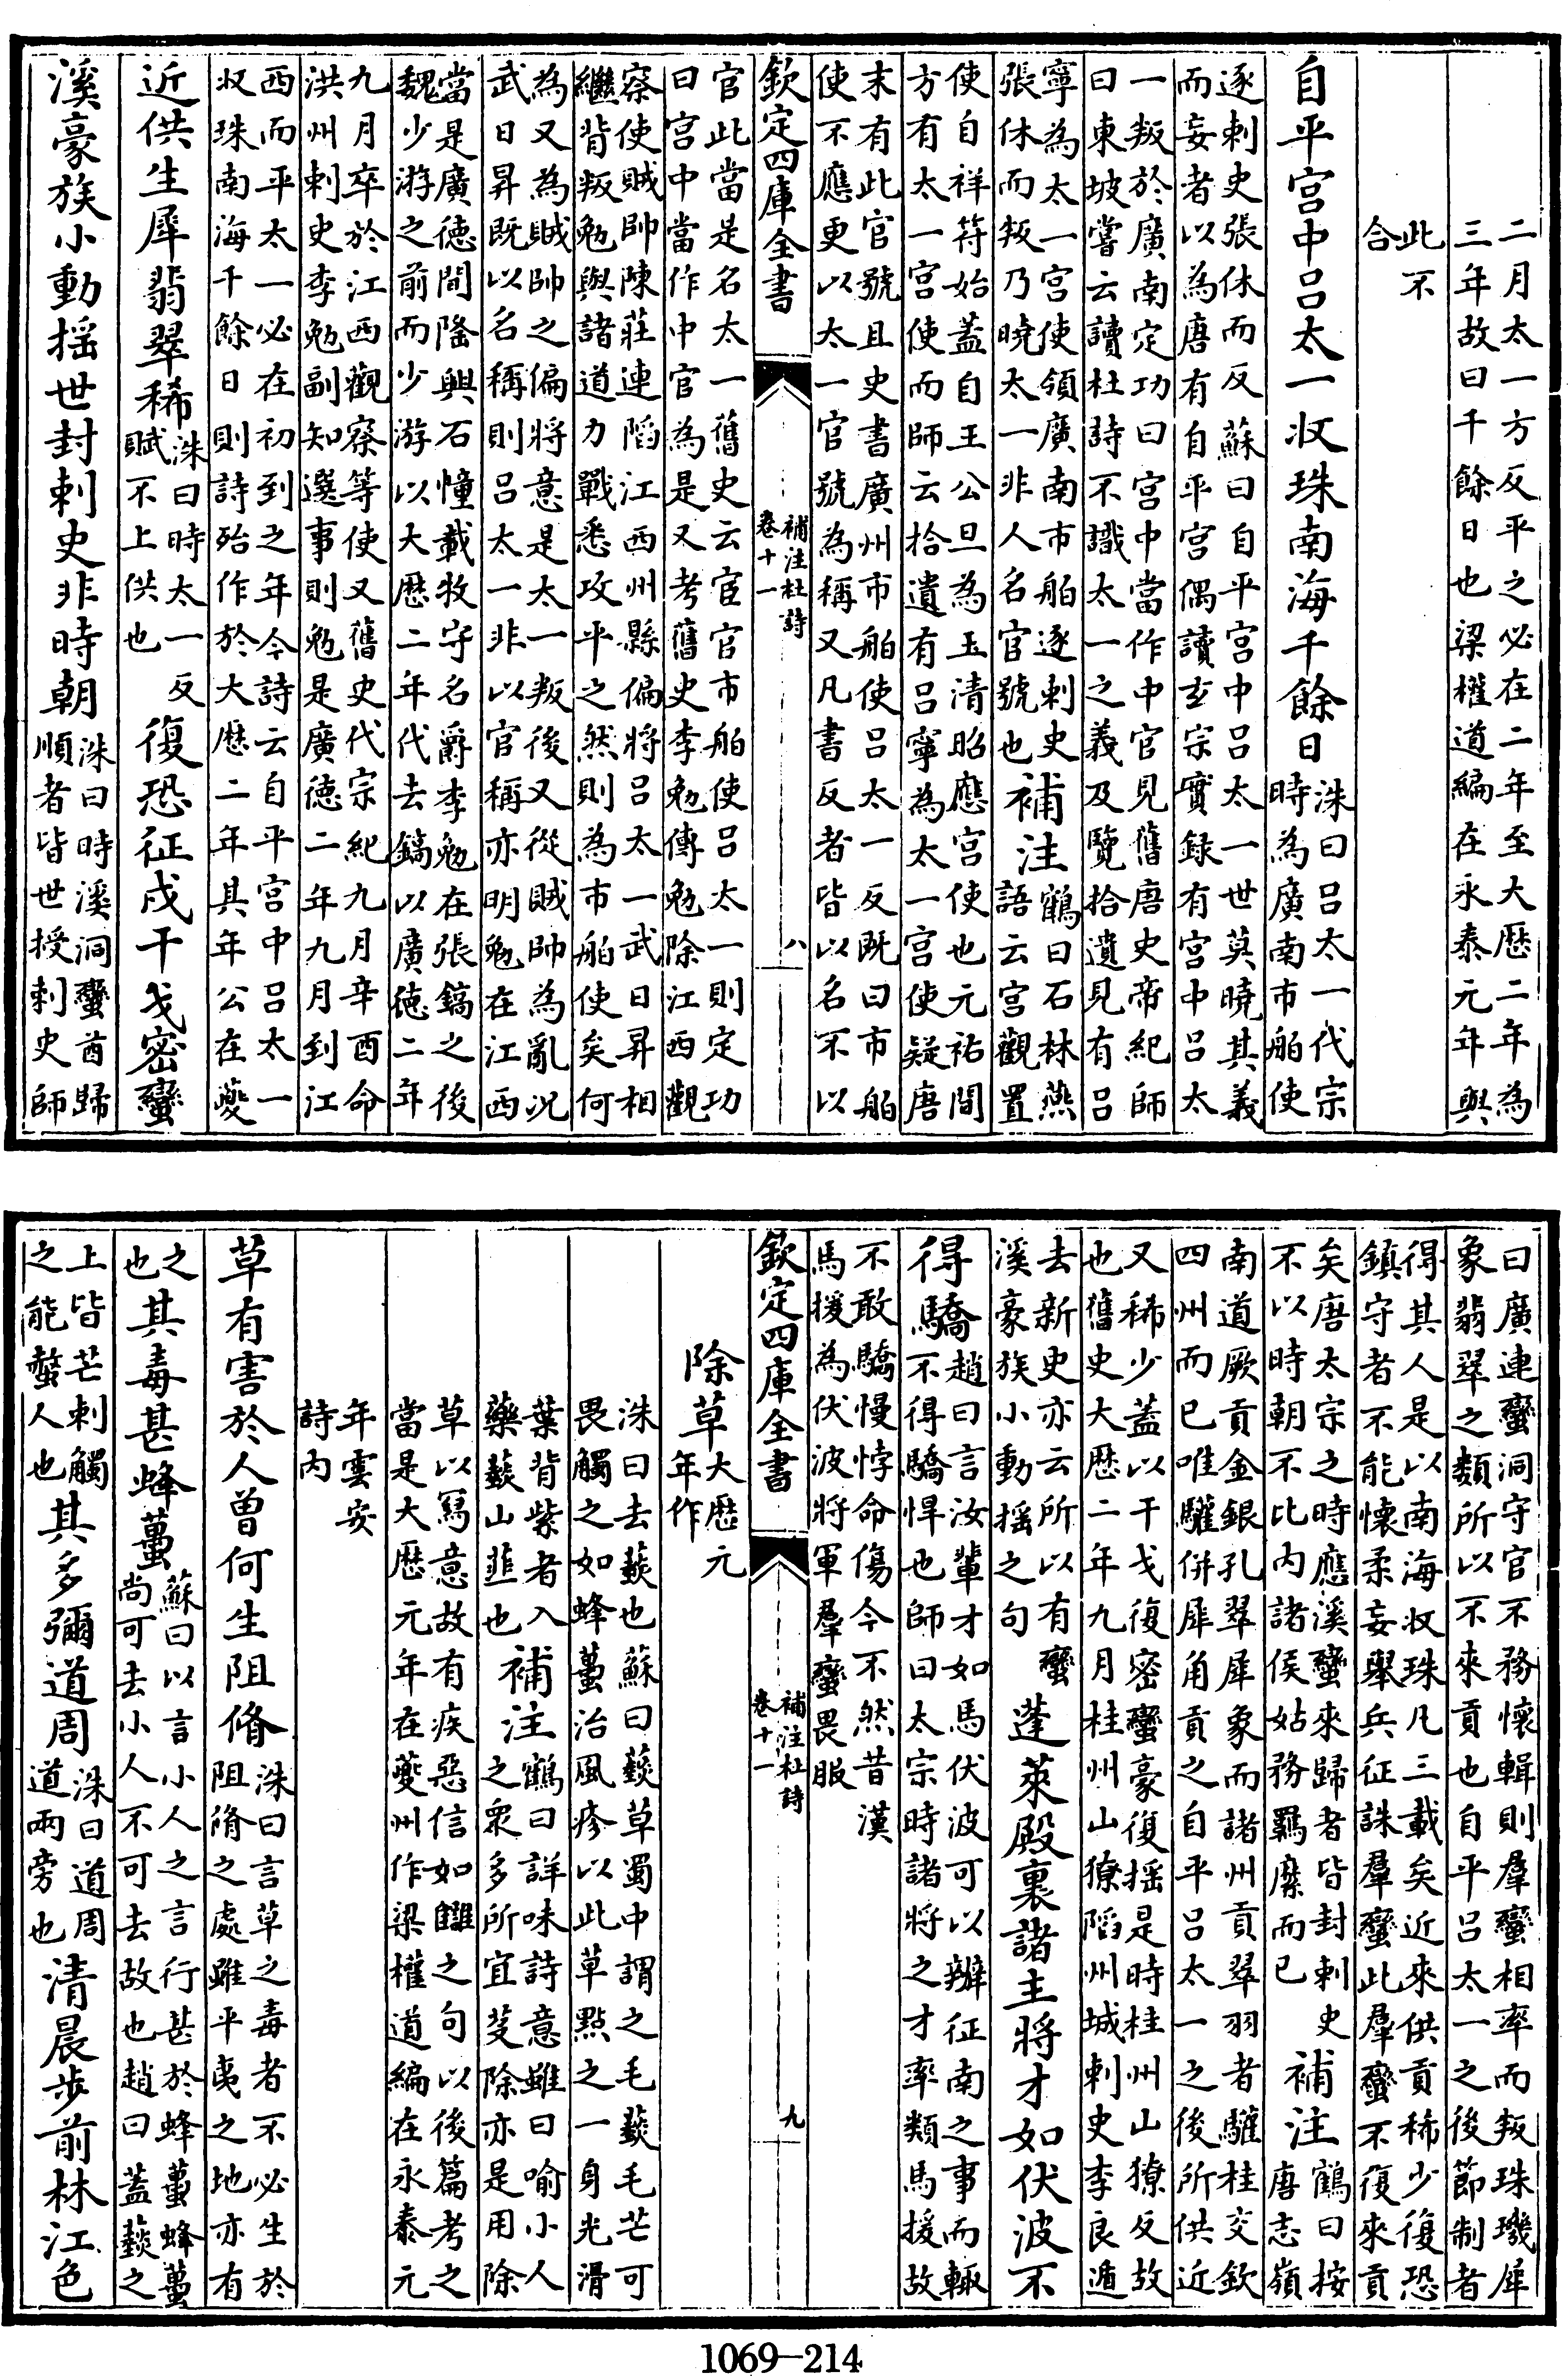 二月太一方反平之必在二年至大歴二年為三年故曰千餘日也梁權道編在永泰元年與
此不合
自平宫中吕太一收珠南海千餘日洙曰吕太一代宗時為廣南市舶使
逐刺史張休而反蘇曰自平宫中吕太一世莫曉其義而妄者以為唐有自平宫偶讀玄宗實録有宫中吕太
一叛於廣南定功曰宫中當作中官見舊唐史帝紀師曰東坡嘗云讀杜詩不識太一之義及覽拾遺見有吕
寧為太一宫使領廣南市舶逐刺史張休而叛乃曉太一非人名官號也補注鶴曰石林燕語云宫觀置
使自祥符始蓋自王公旦為玉清昭應宫使也元祐間方有太一宫使而師云拾遺有吕寧為太一宫使疑唐
末有此官號且史書廣州市舶使吕太一反既曰市舶使不應更以太一官號為稱又凡書反者皆以名不以
欽定四庫全書 補注杜詩 卷十一 八
官此當是名太一舊史云宦官市舶使吕太一則定功曰宫中當作中官為是又考舊史李勉傳勉除江西觀
察使賊帥陳莊連䧟江西州縣偏將吕太一武日昇相繼背叛勉與諸道力戰悉攻平之然則為市舶使矣何
為又為賊帥之偏將意是太一叛後又從賊帥為亂况武日昇既以名稱則吕太一非以官稱亦明勉在江西
當是廣徳間隆興石幢載牧守名爵李勉在張鎬之後魏少游之前而少游以大歴二年代去鎬以廣徳二年
九月卒於江西觀察等使又舊史代宗紀九月辛酉命洪州刺史李勉副知選事則勉是廣徳二年九月到江
西而平太一必在初到之年今詩云自平宫中吕太一收珠南海千餘日則詩殆作於大歴二年其年公在夔
近供生犀翡翠稀洙曰時太一反賦不上供也復恐征戍干戈密蠻
溪豪族小動揺世封刺史非時朝洙曰時溪洞蠻酋歸順者皆世授刺史師
曰廣連蠻洞守官不務懷輯則羣蠻相率而叛珠璣犀象翡翠之類所以不來貢也自平吕太一之後節制者
得其人是以南海收珠凡三載矣近來供貢稀少復恐鎮守者不能懷柔妄舉兵征誅羣蠻此羣蠻不復來貢
矣唐太宗之時應溪蠻來歸者皆封刺史不以時朝不比内諸侯姑務羈縻而已補注鶴曰按唐志嶺
南道厥貢金銀孔翠犀象而諸州貢翠羽者驩桂交欽四州而已唯驩併犀角貢之自平吕太一之後所供近
又稀少蓋以干戈復密蠻豪復揺是時桂州山獠反故也舊史大歴二年九月桂州山獠䧟州城刺史李良遁
去新史亦云所以有蠻溪豪族小動揺之句蓬萊殿裏諸主將才如伏波不
得驕趙曰言汝輩才如馬伏波可以辦征南之事而輙不得驕悍也師曰太宗時諸將之才率類馬援故
不敢驕慢悖命傷今不然昔漢馬援為伏波將軍羣蠻畏服
欽定四庫全書 補注杜詩 卷十一 九
除草大歴元年作
洙曰去蕺也蘇曰蕺草蜀中謂之毛蕺毛芒可畏觸之如蜂蠆治風疹以此草點之一身光滑
葉背紫者入藥蕺山韮也補注鶴曰詳味詩意雖曰喻小人之衆多所宜芟除亦是用除
草以寫意故有疾惡信如讎之句以後篇考之當是大歴元年在夔州作梁權道編在永泰元
年雲安詩内
草有害於人曾何生阻脩洙曰言草之毒者不必生於阻脩之處雖平夷之地亦有
之也其毒甚蜂蠆蘇曰以言小人之言行甚於蜂蠆蜂蠆尚可去小人不可去故也趙曰蓋蕺之
上皆芒刺觸之能螫人也其多彌道周洙曰道周道兩旁也清晨步前林江色
1069—214